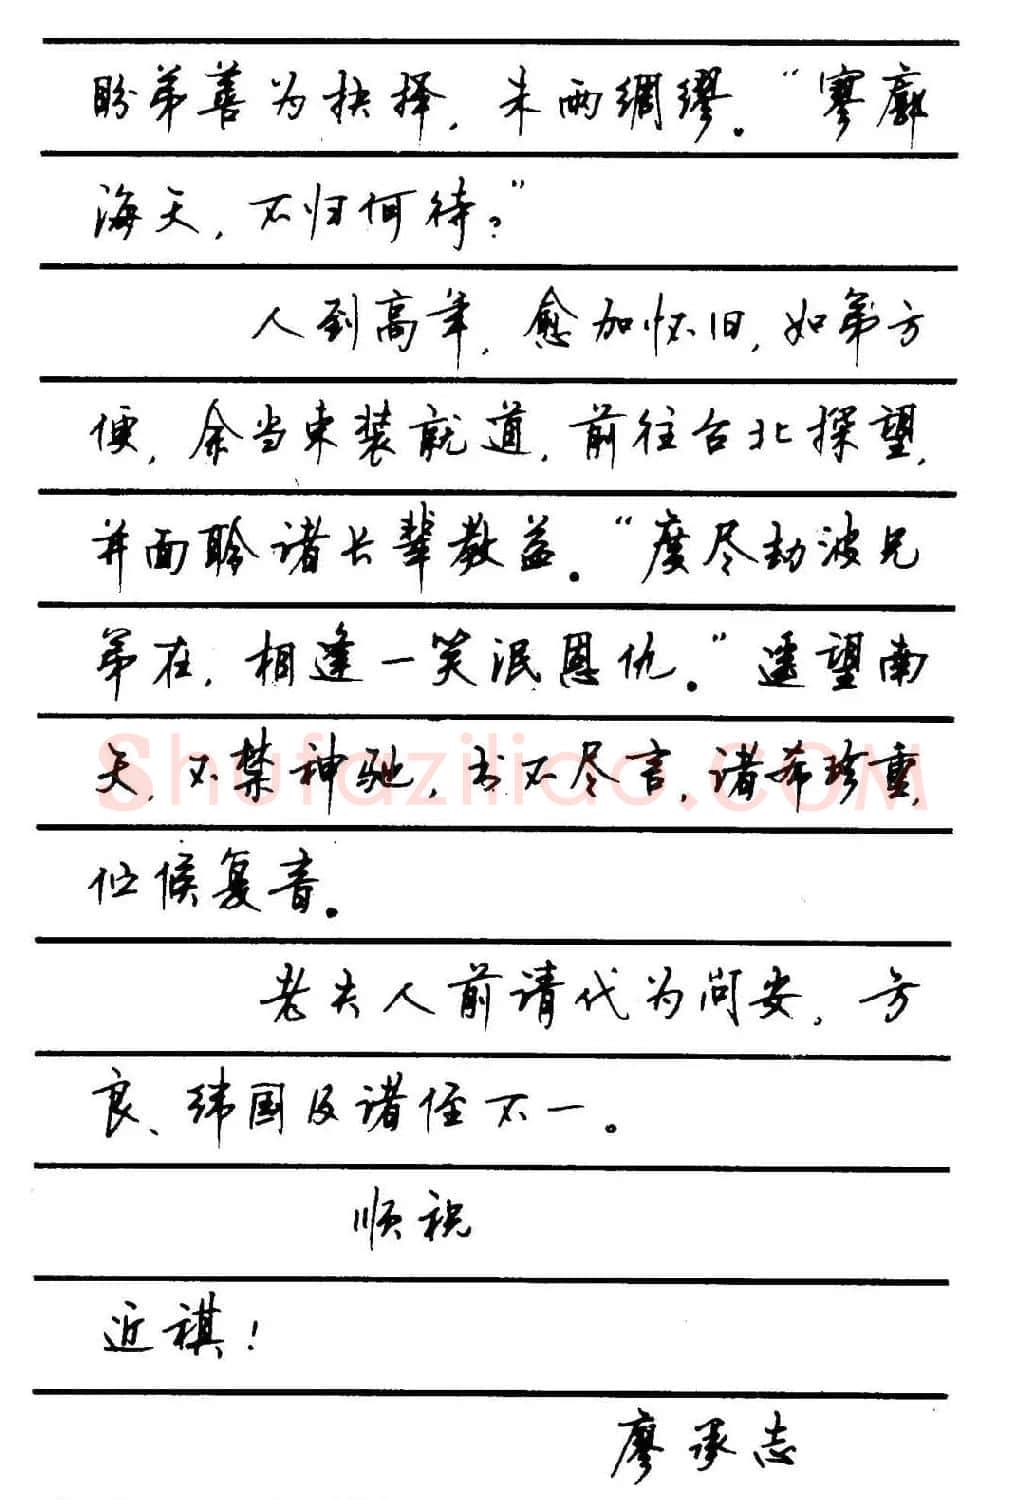 盼弟善为抉择，未雨绸缪。“寥廓
海天，不归何待？”
人到高年，愈加怀旧，如弟方
便，余当束装就道，前往台北探望，
并面聆诸长辈教益。“度尽劫波兄
弟在，相逢一笑泯恩仇。”遥望南
天，不禁神驰，书不尽言，诸希珍重，
伫候复音。
老夫人前请代为问安，方
良、纬国及诸侄不一。
顺祝
近祺！
廖承志
Shufaziliao.COM